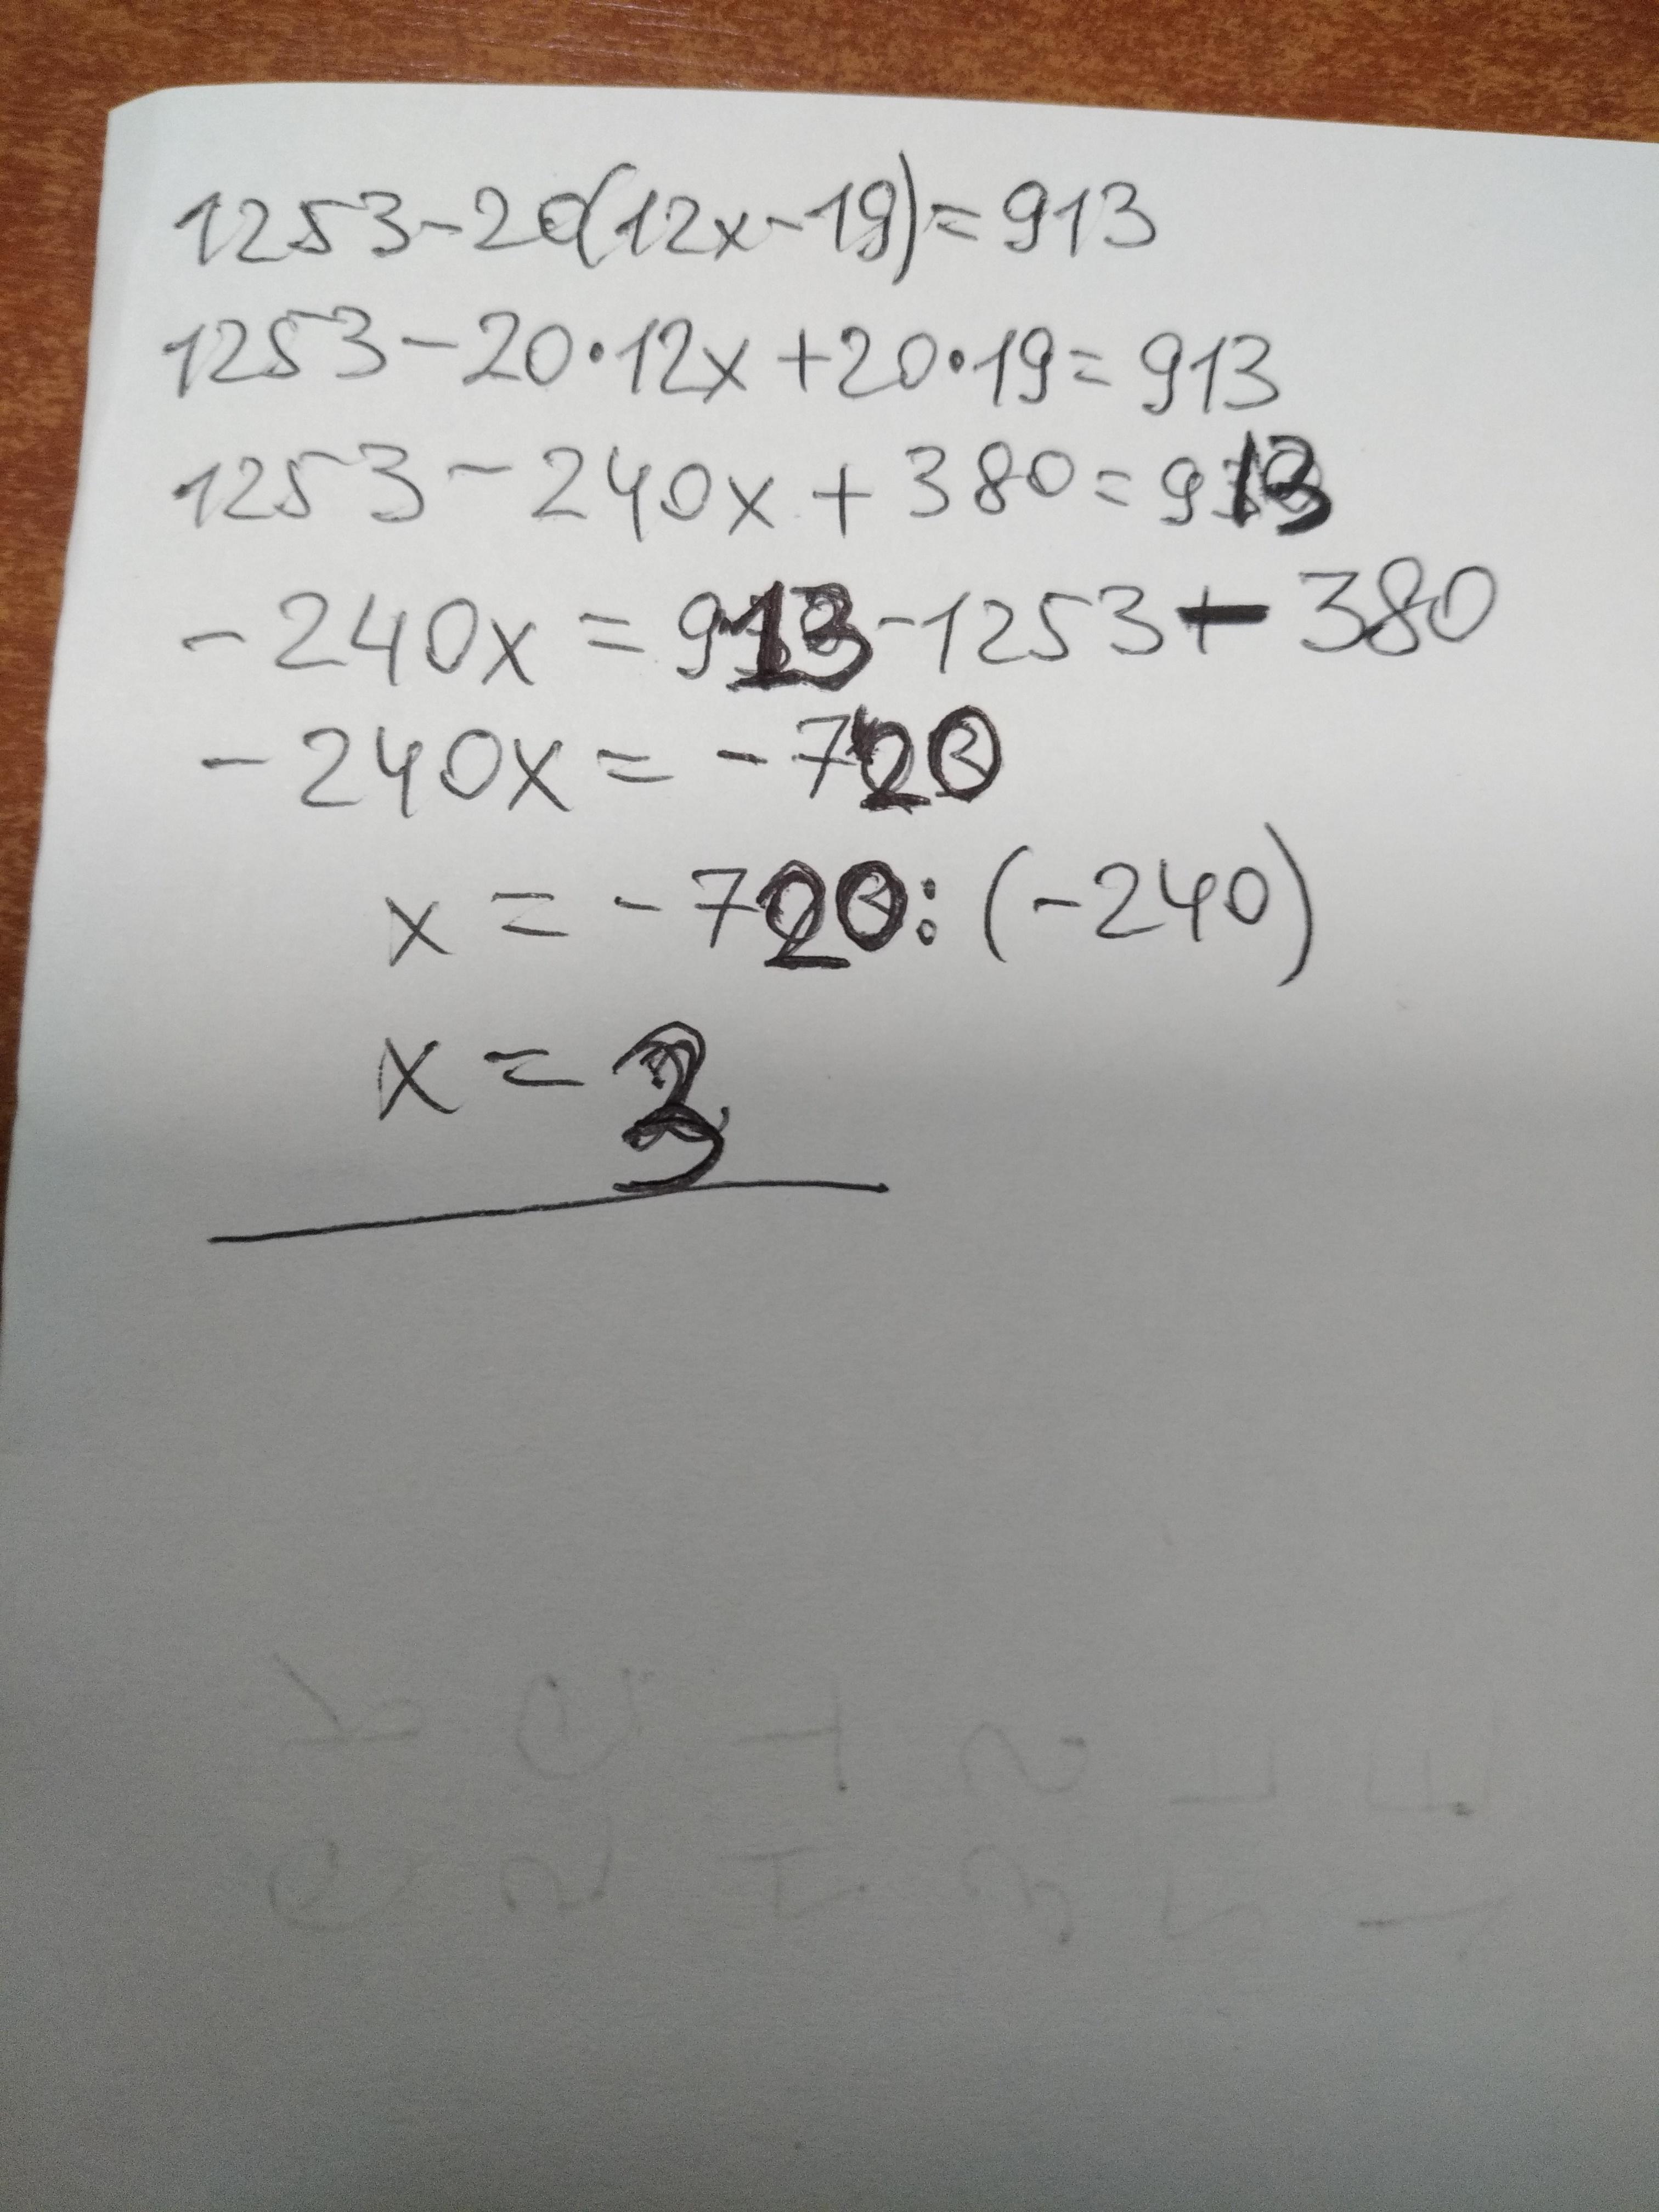 1253-20(12x-19)=913
1253-20·12x+20·19=913
1253-240x+380=913
-240x=913-1253-380
-240x=-720
x=-720:(-240)
x=3